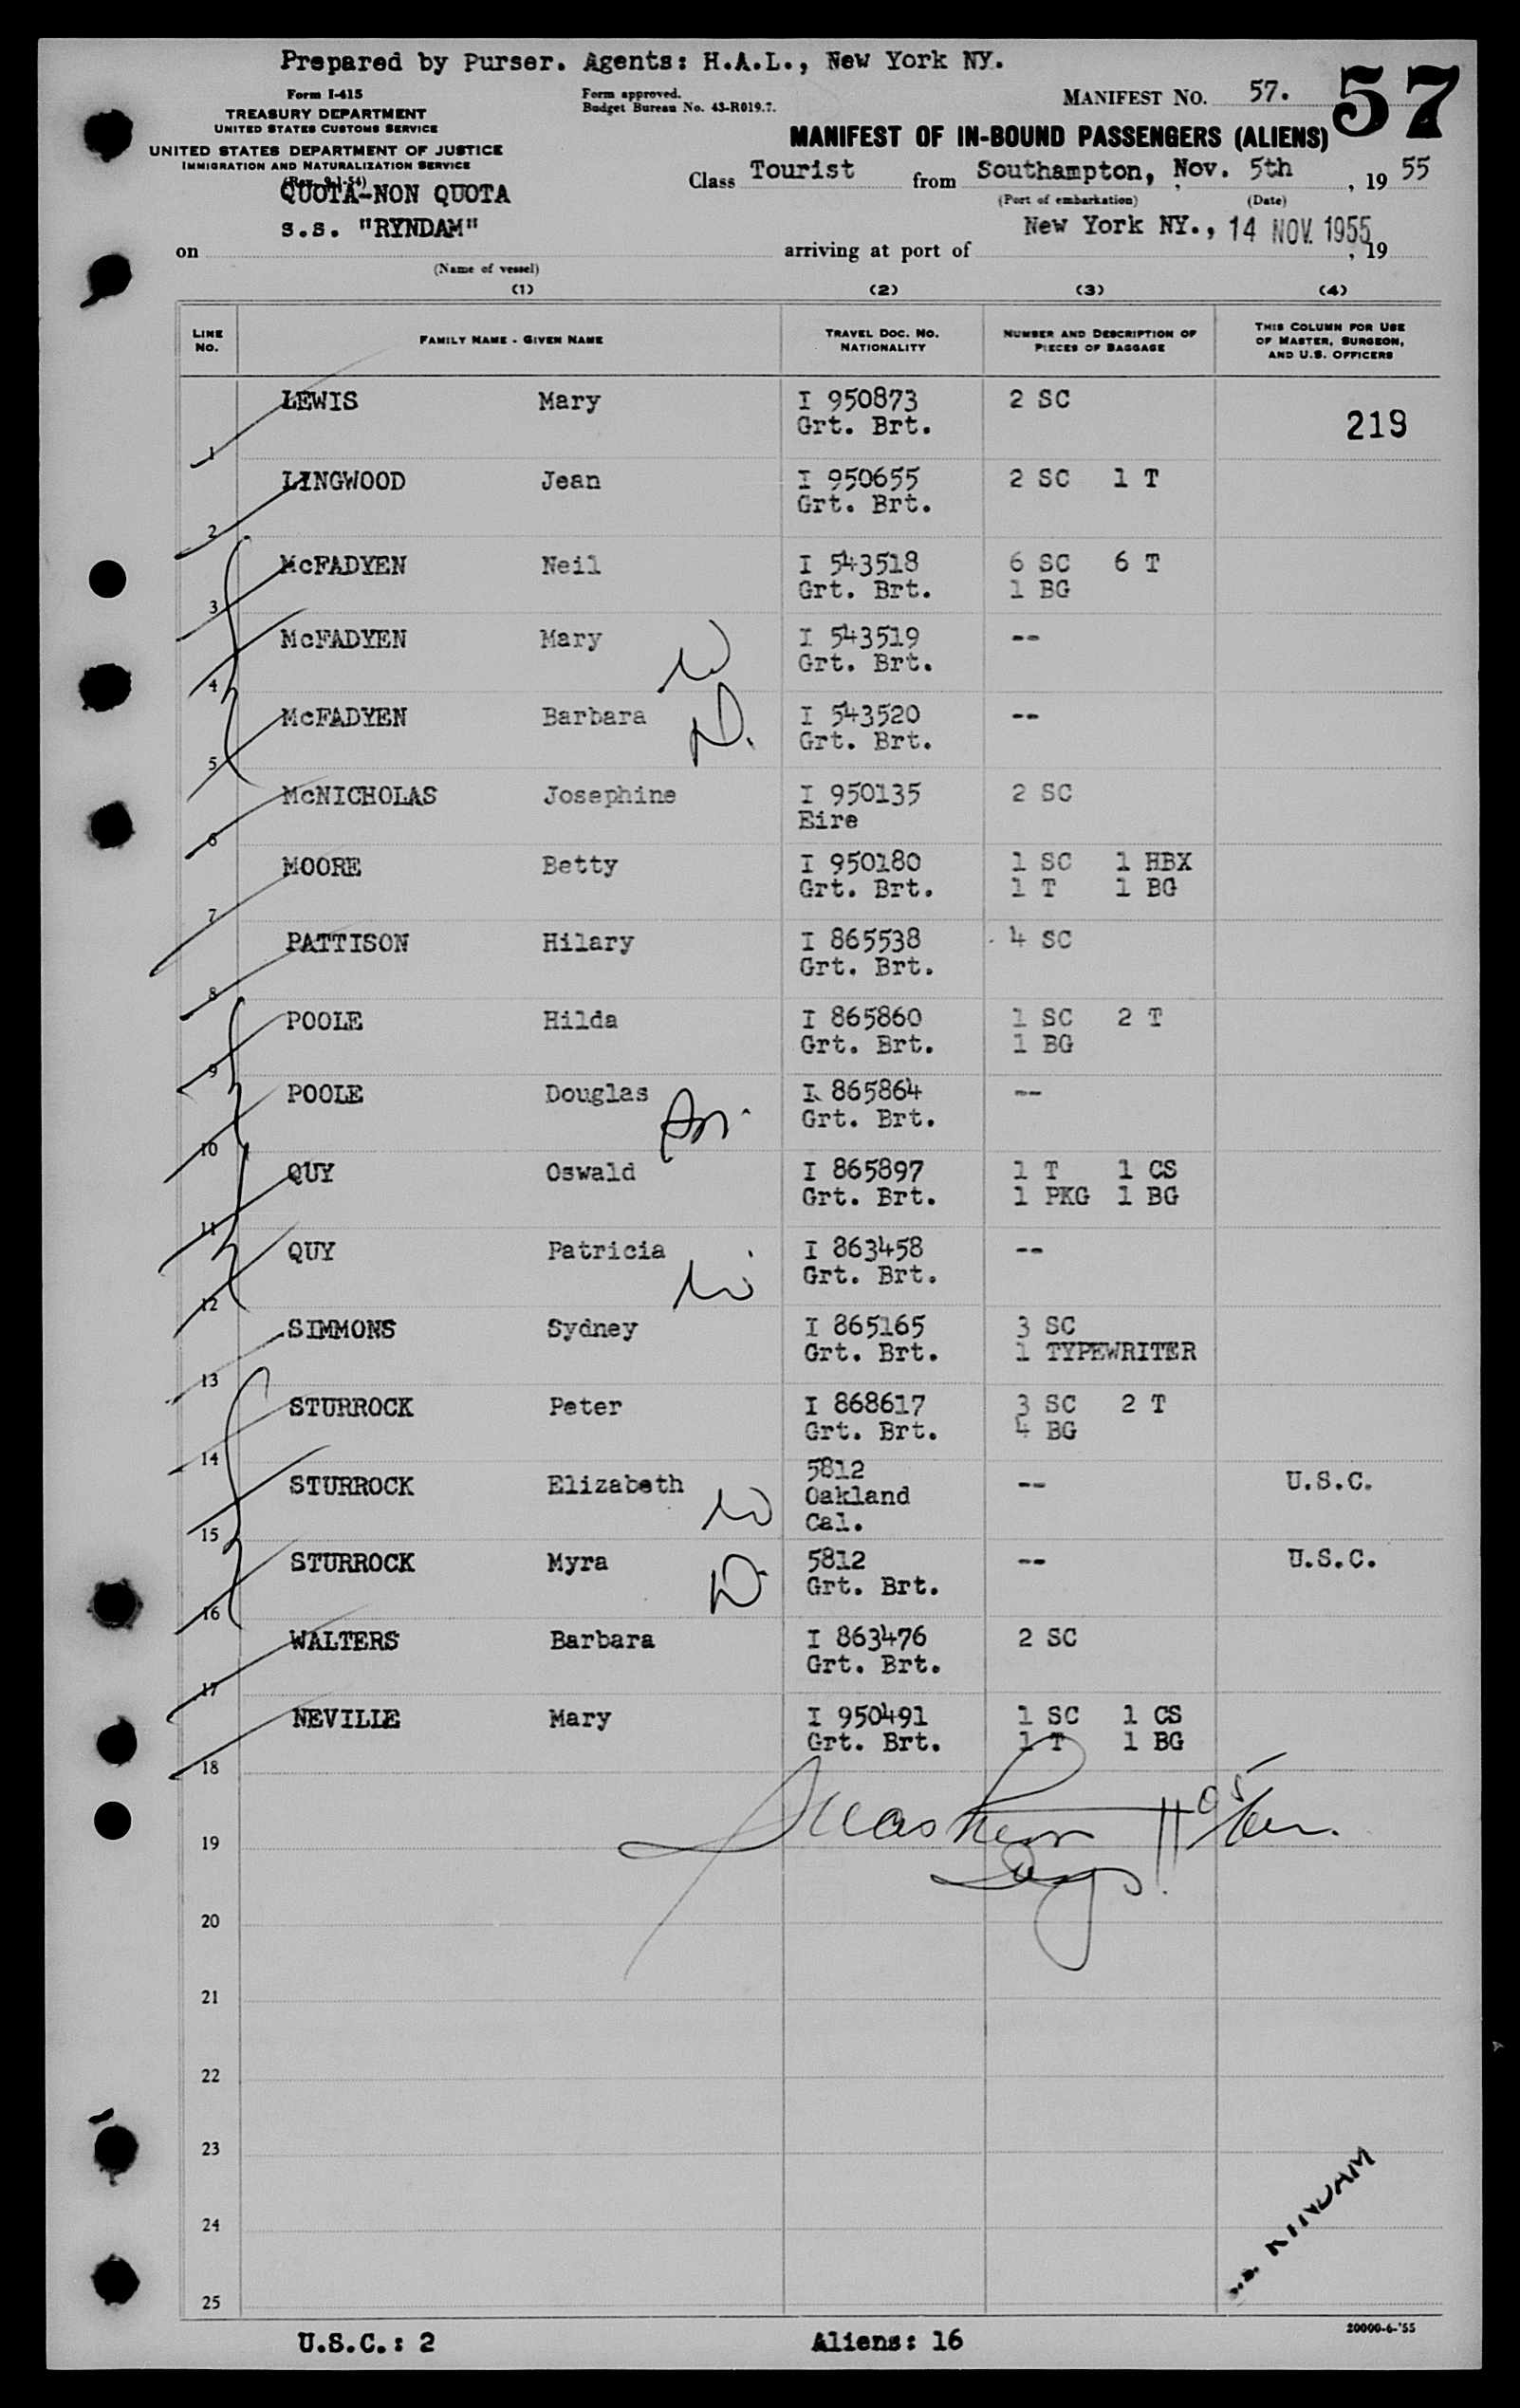 Prepared by Purser. Agents: H.A.L., New York NY.
Form I-415
TREASURY DEPARTMENT
UNITED STATES CUSTOMS SERVICE
UNITED STATES DEPARTMENT OF JUSTICE
IMMIGRATION AND NATURALIZATION SERVICE
(Rev. 9-1-54)
QUOTA-NON QUOTA
Form approved.
Budget Bureau No. 43-R019.7.
MANIFEST NO. 57. 57
MANIFEST OF IN-BOUND PASSENGERS (ALIENS)
Class Tourist from Southampton, Nov. 5th, 19 55
(Port of embarkation) (Date)
on s.s. "RYNDAM" arriving at port of New York NY., 14 NOV. 1955, 19
(Name of vessel)
(1) (2) (3) (4)
LINE NO. FAMILY NAME - GIVEN NAME TRAVEL DOC. NO. NATIONALITY NUMBER AND DESCRIPTION OF PIECES OF BAGGAGE THIS COLUMN FOR USE OF MASTER, SURGEON, AND U.S. OFFICERS
1 LEWIS Mary I 950873 2 SC
Grt. Brt. 219
2 LINGWOOD Jean I 950655 2 SC 1 T
Grt. Brt.
3 McFADYEN Neil I 543518 6 SC 6 T
Grt. Brt. 1 BG
4 McFADYEN Mary I 543519 --
Grt. Brt.
5 McFADYEN Barbara I 543520 --
Grt. Brt.
6 McNICHOLAS Josephine I 950135 2 SC
Eire
7 MOORE Betty I 950180 1 SC 1 HBX
Grt. Brt. 1 T 1 BG
8 PATTISON Hilary I 865538 4 SC
Grt. Brt.
9 POOLE Hilda I 865860 1 SC 2 T
Grt. Brt. 1 BG
10 POOLE Douglas I 865864 --
Grt. Brt.
11 QUY Oswald I 865897 1 T 1 CS
Grt. Brt. 1 PKG 1 BG
12 QUY Patricia I 863458 --
Grt. Brt.
13 SIMMONS Sydney I 865165 3 SC
Grt. Brt. 1 TYPEWRITER
14 STURROCK Peter I 868617 3 SC 2 T
Grt. Brt. 4 BG
15 STURROCK Elizabeth 5812 -- U.S.C.
Oakland
Cal.
16 STURROCK Myra 5812 -- U.S.C.
Grt. Brt.
17 WALTERS Barbara I 863476 2 SC
Grt. Brt.
18 NEVILIE Mary I 950491 1 SC 1 CS
Grt. Brt. 1 T 1 BG
19
20
21
22
23
24
25
RYNDAM
20000-6-'55
U.S.C.: 2 Aliens: 16